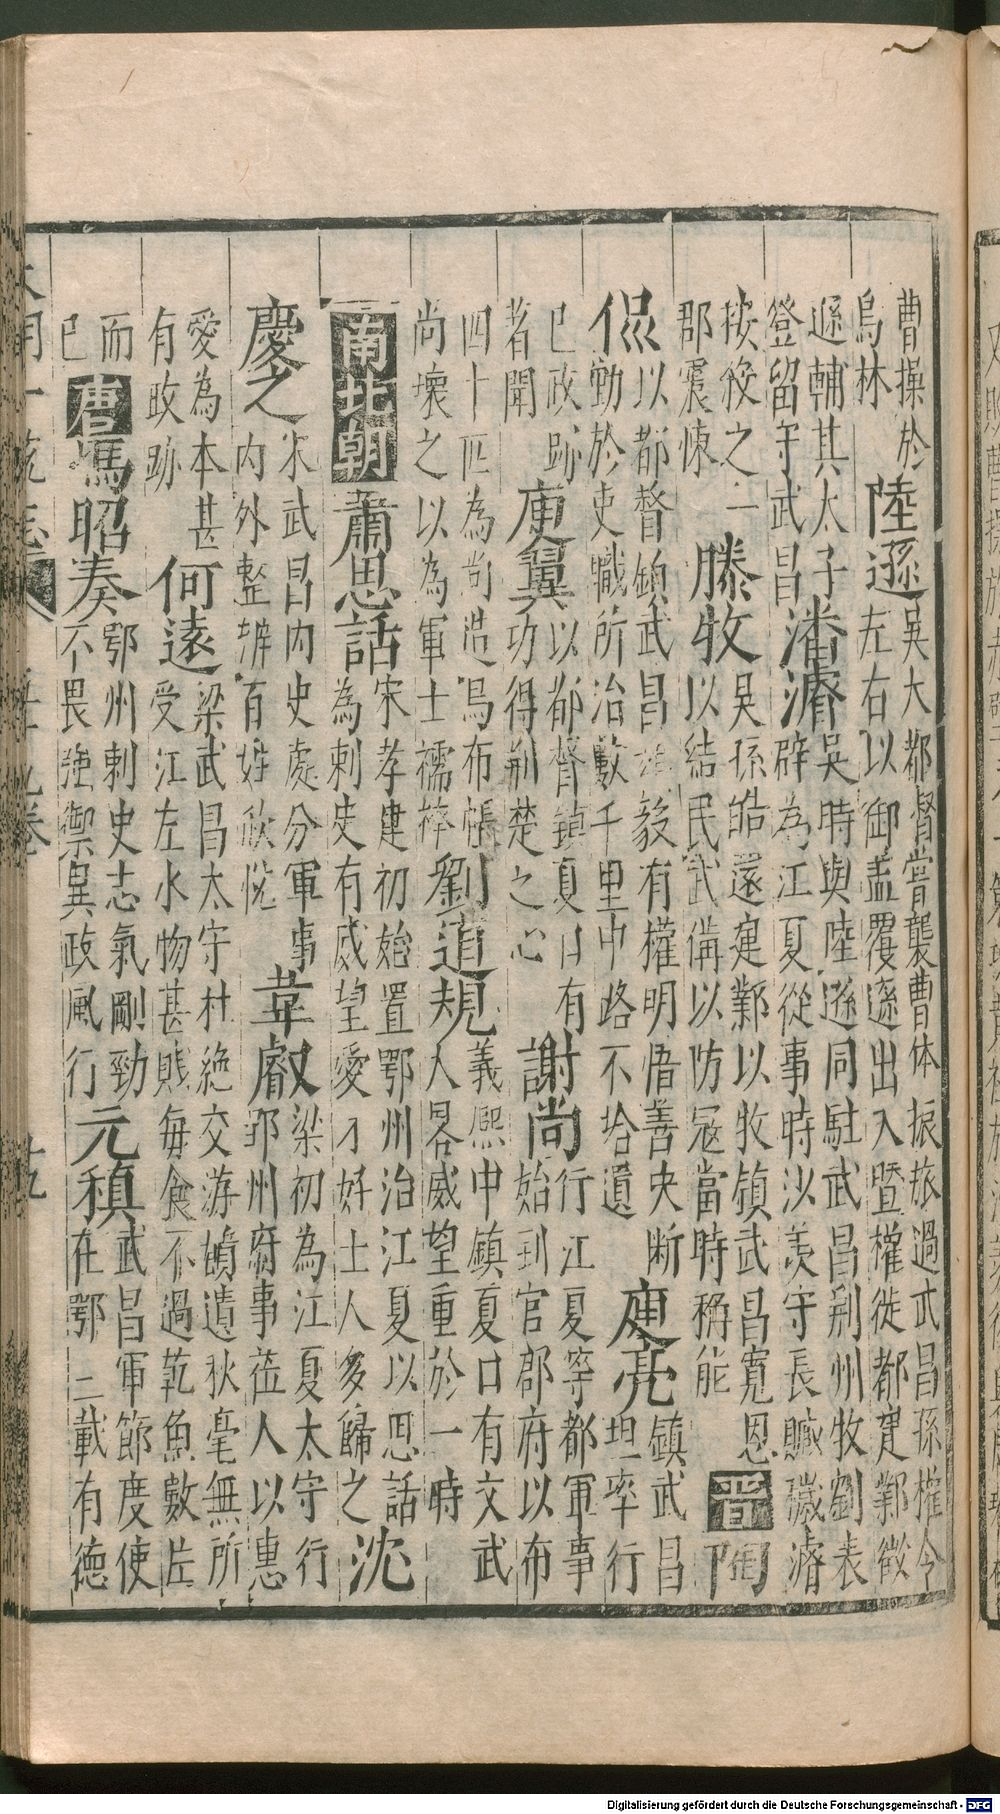 曹操於
烏林
陸遜
吳大都督嘗襲曹休振旅過武昌孫權令
左右以御蓋覆遜出入暨權徙都建鄴徵
遜輔其太子
登留守武昌
潘濬
吳時與陸遜同駐武昌荆州牧劉表
辟為江夏從事時沙羨守長贓穢濬
按殺之一
郡震悚
滕牧
吳孫皓遷建鄴以牧鎮武昌寬恩
以結民武備以防寇當時稱能
晉
陶
侃
以都督鎮武昌雄毅有權明悟善決斷
勤於吏職所治數千里中路不拾遺
庾亮
鎮武昌
坦率行
已政跡
著聞
庾翼
以都督鎮夏口有
功得荆楚之心
謝尚
行江夏等都軍事
始到官郡府以布
四十匹為尚造烏布帳
尚壞之以為軍士襦袴
劉道規
義熙中鎮夏口有文武
人畧威望重於一時
南北朝
蕭思話
宋孝建初始置鄂州治江夏以思話
為刺史有威望愛才好士人多歸之
沈
慶之
宋武昌内史處分軍事
内外整辦百姓欣悅
韋叡
梁初為江夏太守行
郢州府事莅人以惠
愛為本甚
有政跡
何遠
梁武昌太守杜絶交游饋遺秋毫無所
受江左水物甚賤每食不過乾魚數片
而
已
唐
馮昭泰
鄂州刺史志氣剛勁
不畏強禦異政風行
元稹
武昌軍節度使
在鄂二載有德
大明一統志
五十九卷
Digitalisierung gefördert durch die Deutsche Forschungsgemeinschaft - DFG